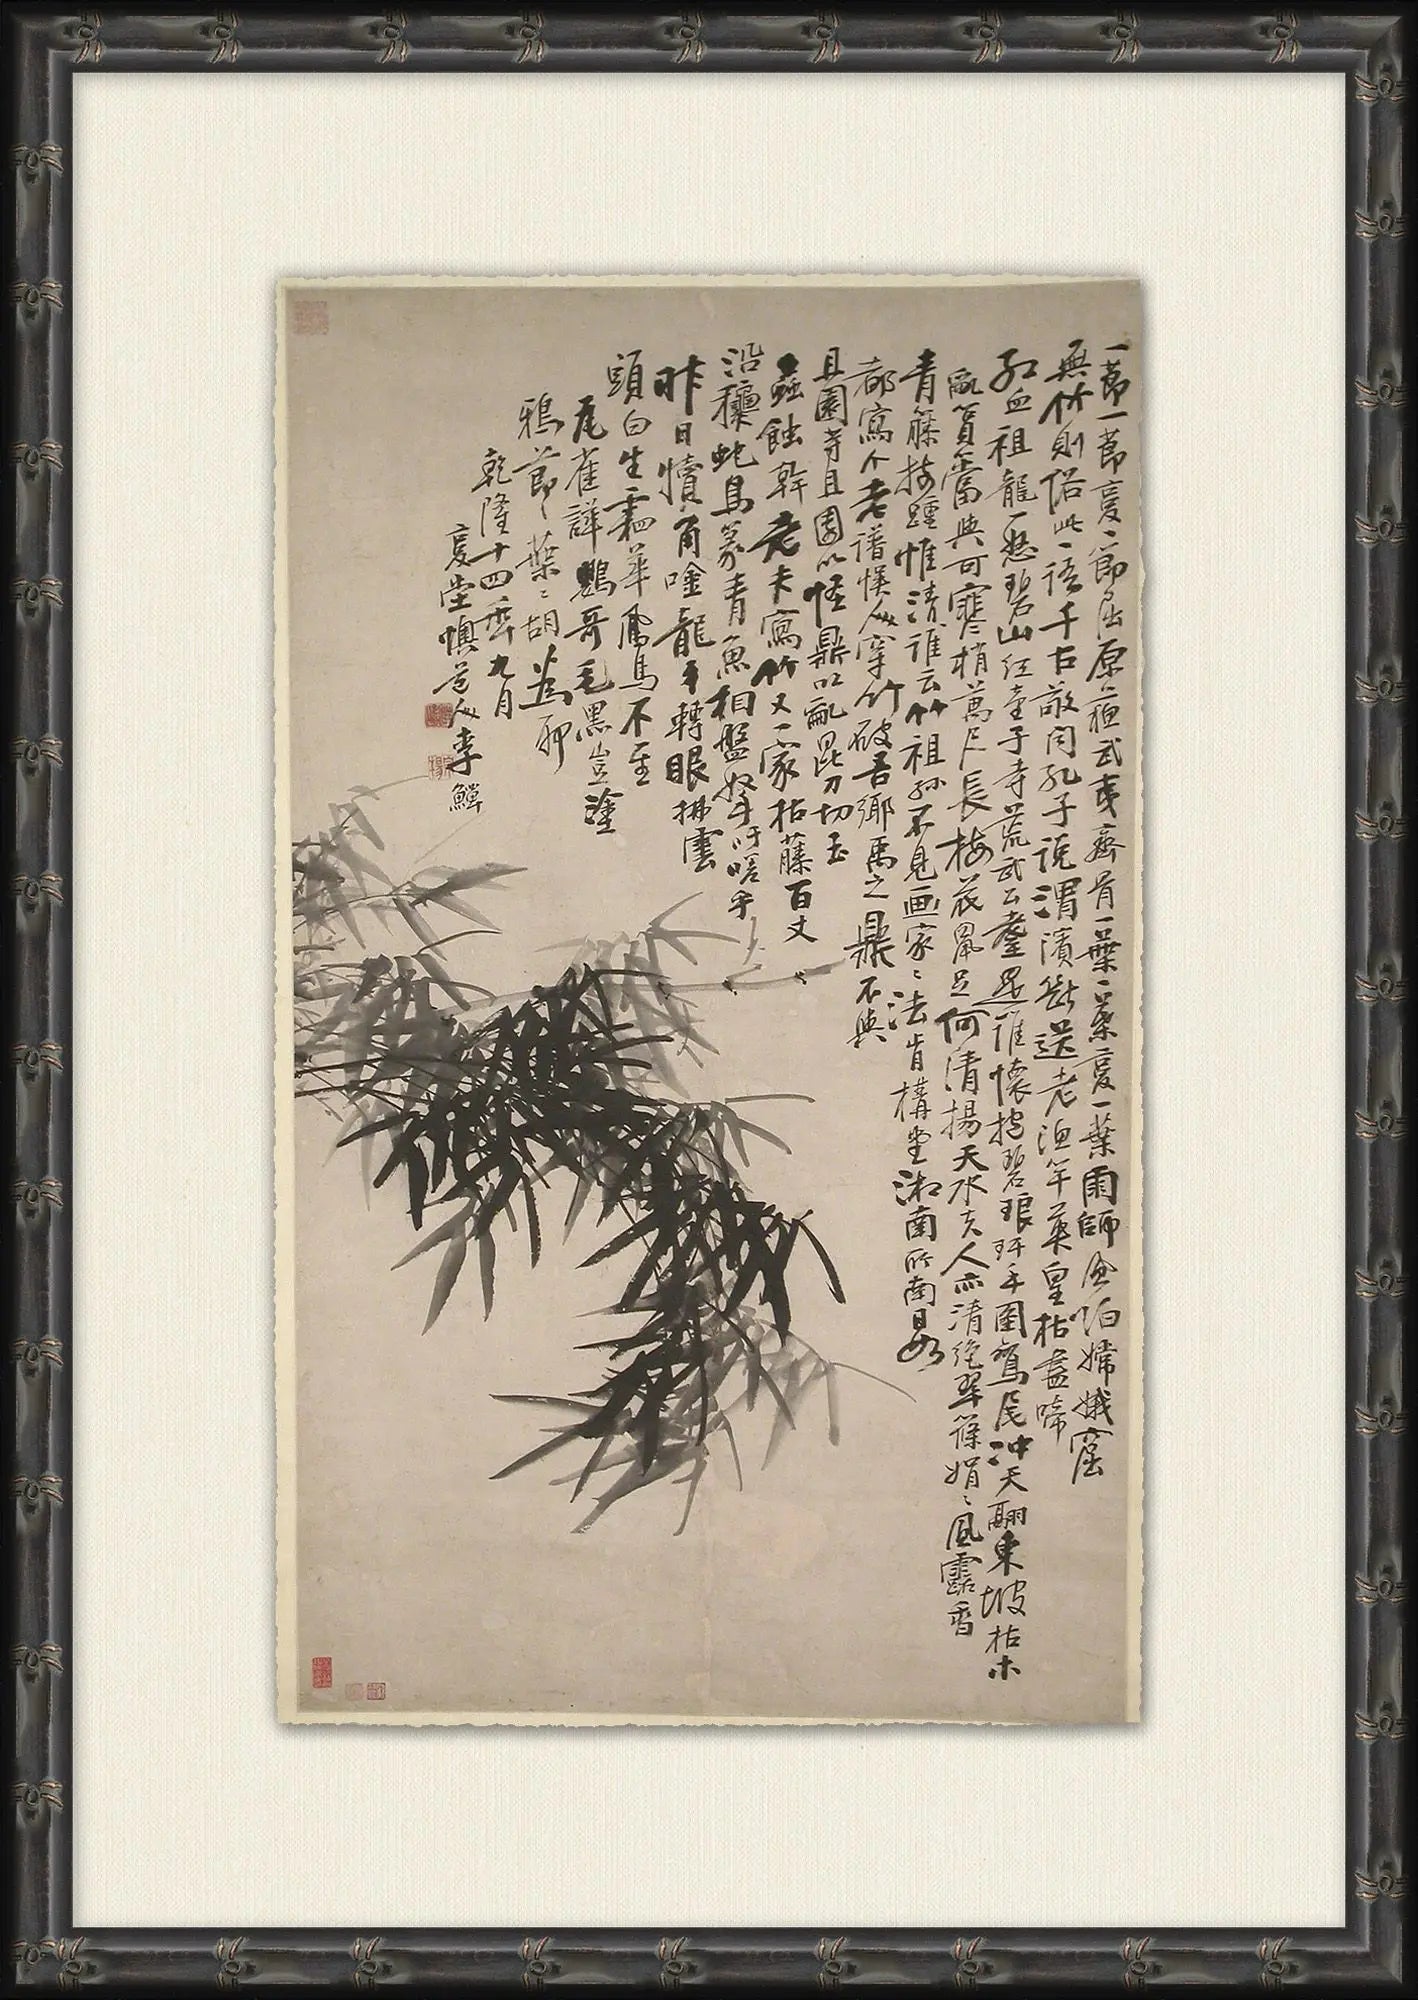 一節一節复一節屈原廟武夷齋骨一葉一葉复一葉雨師風伯嫦娥窟
無竹則俗此一語千古敢問孔子說渭濱斷送老漁竿英皇枯盡啼
紅血祖龍一怒碧山紅童子寺荒武公耄是誰懷抱碧琅玕千園鸞尾沖天翮東坡枯木
亂篔簹與可寒梢萬尺長梅花鼠足何清揚天水夫人亦清絕翠篠娟娟風露香
青藤接踵惟清誰云竹祖孫不見画家家法肯構堂湘南所南日以
都寫个老譜悞人穿竹破吾鄉禹之鼎不與
且園寺且園以怪鼎以亂昆刀切玉
蟲蝕幹老夫寫竹又一家枯藤百丈
沿 蛇鳥篆青魚相盤拏吁嗟乎
昨日犢角唫龍 轉眼拂雲
頭白生霜華鳳鳥不至
尾雀譁鸚哥毛黑豈塗
鴉節節葉葉胡為耶
乾隆十四年九月
复堂懊道人李鱓